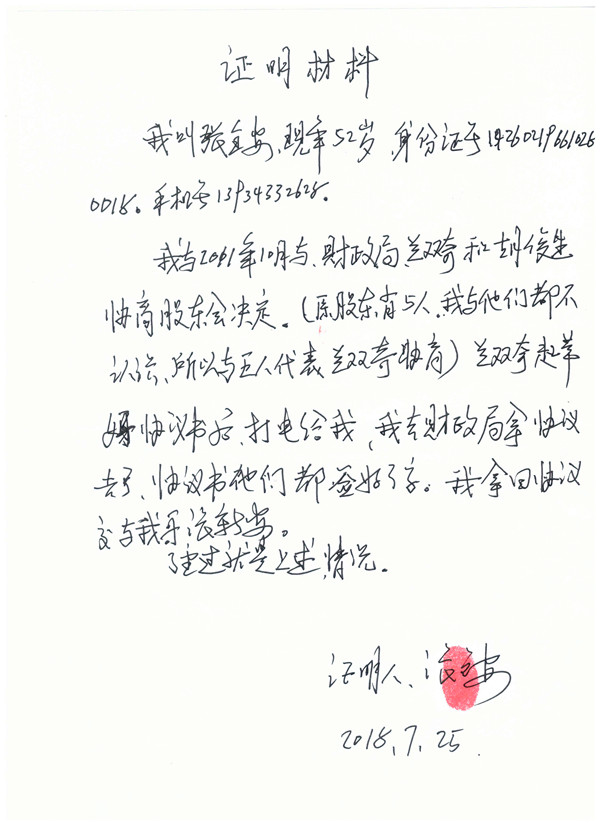 证明材料
我叫张宝安、现年52岁,身份证号14260219661026
0018。手机号13934332628。
我与2001年10月与、财政局兰双奇和胡俊生
协商股东会决定。(原股东有5人、我与他们都不
认识、所以与五人代表兰双奇协商)兰双奇起草
协议书后、打电给我,我去财政局拿协议
书、协议书他们都签好了字。我拿回协议
交与我哥张转安。
经过就是上述情况。
证明人、张宝安
2018.7.25